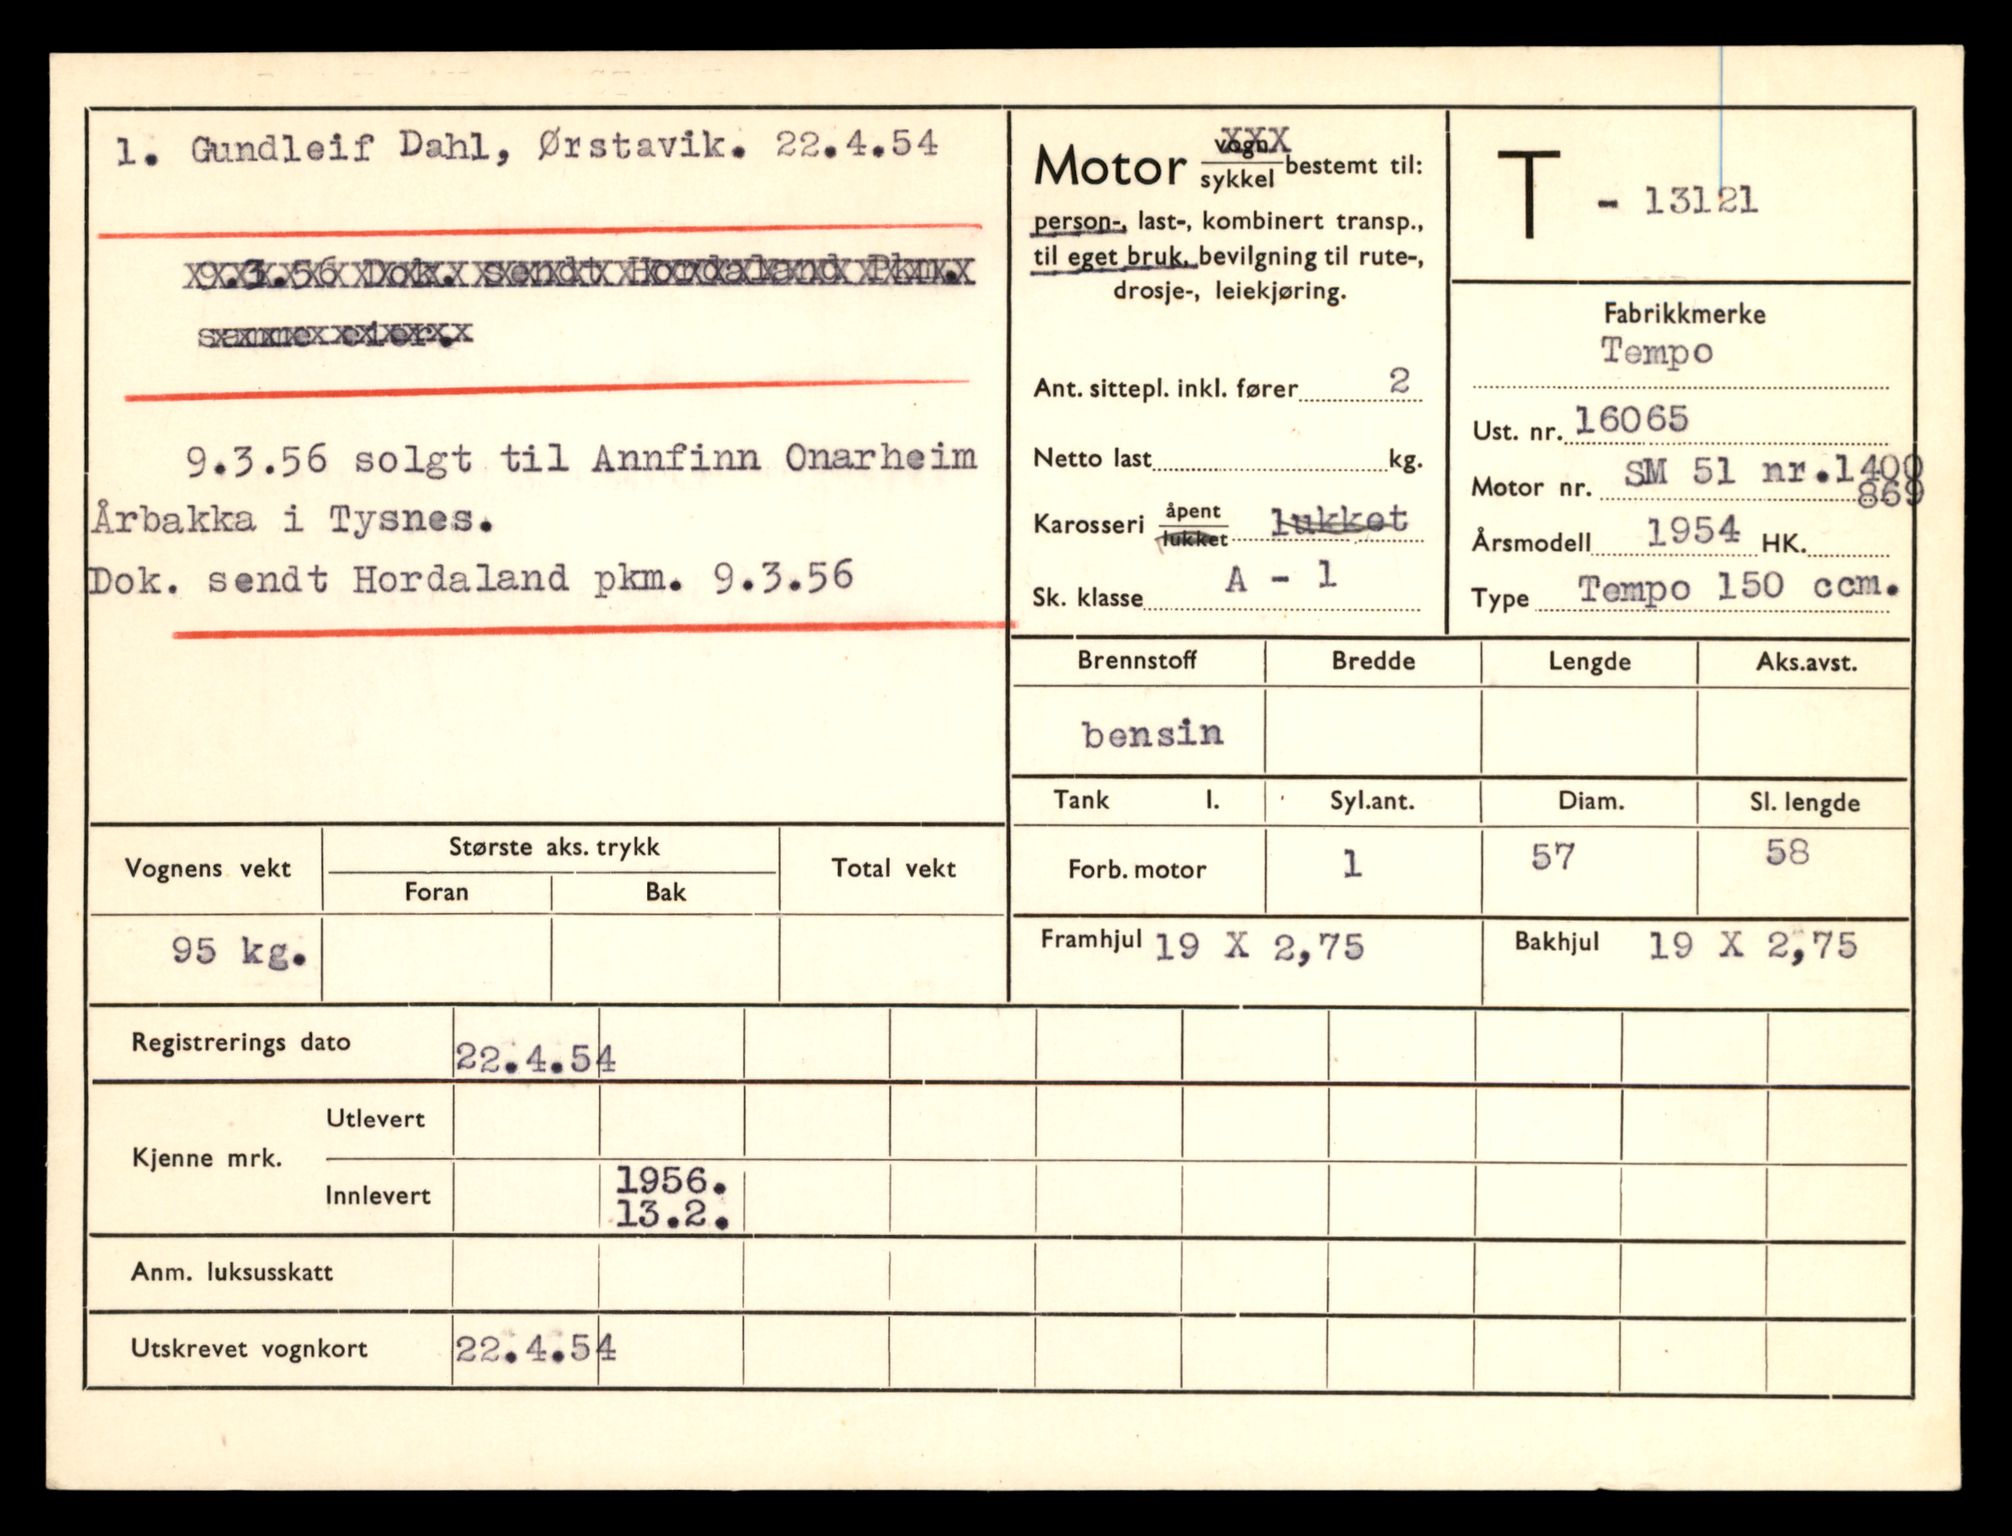 1. Gundleif Dahl, Ørstavik. 22.4.54
9.3.56 Dok. sendt Hordaland Pkm.
samme eier.
9.3.56 solgt til Annfinn Onarheim
Årbakka i Tysnes.
Dok. sendt Hordaland pkm. 9.3.56
Motor vogn XXX
sykkel bestemt til:
person-, last-, kombinert transp.,
til eget bruk, bevilgning til rute-,
drosje-, leiekjøring.
Ant. sittepl. inkl. fører 2
Netto last kg.
Karosseri åpent
lukket lukket
Sk. klasse A - 1
T - 13121
Fabrikkmerke
Tempo
Ust. nr. 16065
Motor nr. SM 51 nr.1400
869
Årsmodell 1954 HK.
Type Tempo 150 ccm.
Brennstoff Bredde Lengde Aks.avst.
bensin
Tank l. Syl.ant. Diam. Sl. lengde
Forb. motor 1 57 58
Framhjul 19 X 2,75 Bakhjul 19 X 2,75
Vognens vekt Største aks. trykk Total vekt
Foran Bak
95 kg.
Registrerings dato 22.4.54
Kjenne mrk. Utlevert
Innlevert 1956.
13.2.
Anm. luksusskatt
Utskrevet vognkort 22.4.54